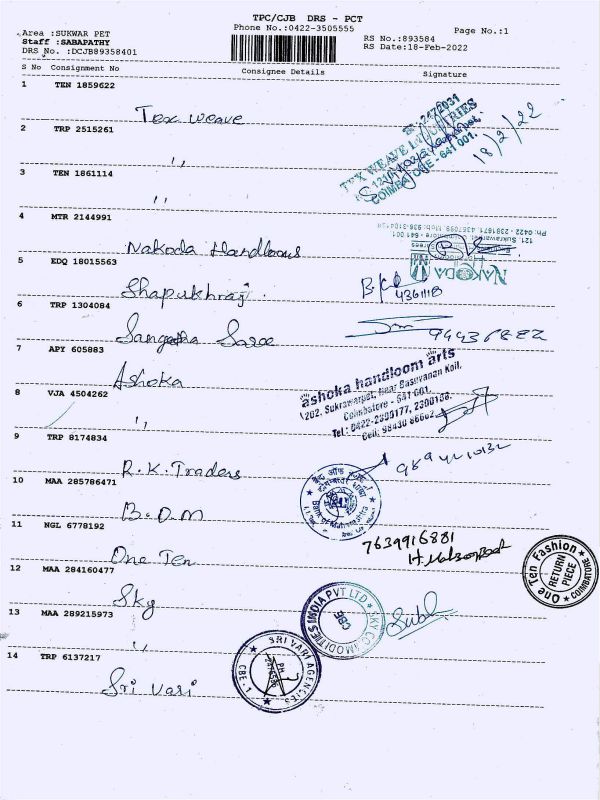 TPC/CJB DRS - PCT
Phone No.:0422-3505555
Page No.:1
Area :SUKWAR PET
Staff :SABAPATHY
DRS No. :DCJB89358401
RS No.:893584
RS Date:18-Feb-2022
S No Consignment No Consignee Details Signature
1 TEN 1859622
Tex weave
2 TRP 2515261
,,
3 TEN 1861114
,,
TEX WEAVE
COIMBATORE - 641 001.
18/2/22
4 MTR 2144991
Nakoda Handlooms
NAKODA
5 EDQ 18015563
Shapukhraj.
6 TRP 1304084
Sangeetha Saree
7 APY 605883
Ashoka
ashoka handloom arts
202, Sukrawarpet, Near Basuvanan Koil,
Coimbatore - 641 001.
Tel : 0422-2300177, 2300138.
8 VJA 4504262
,,
9 TRP 8174834
R.K. Traders
10 MAA 285786471
B.O.M
Bank of Maharashtra
11 NGL 6778192
One Ten
7639916881
One Ten Fashion
RETURN PIECE
COIMBATORE
12 MAA 284160477
Sky
SKY COMMODITIES INDIA PVT LTD
CBE
13 MAA 289215973
,,
14 TRP 6137217
Sri Vari
SRI VARI AGENCIES
CBE-1